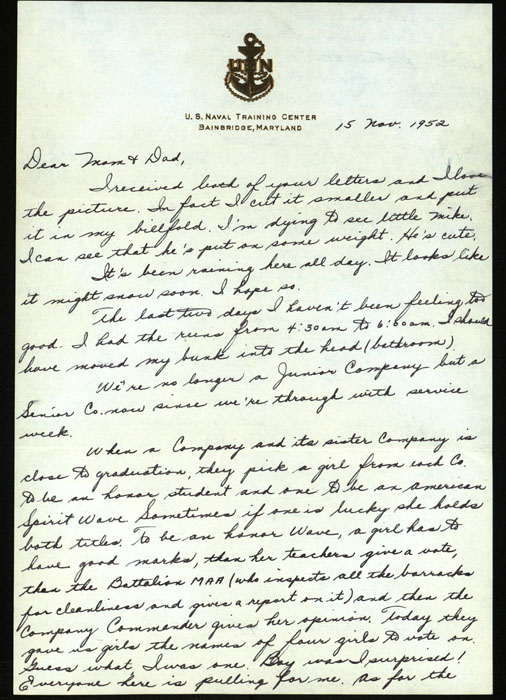 USN
U. S. NAVAL TRAINING CENTER
BAINBRIDGE, MARYLAND
15 Nov. 1952
Dear Mom & Dad,
I received both of your letters and I love
the picture. In fact I cut it smaller and put
it in my billfold. I'm dying to see little Mike.
I can see that he's put on some weight. He's cute.
It's been raining here all day. It looks like
it might snow soon. I hope so.
The last two days I haven't been feeling too
good. I had the runs from 4:30am to 6:00am. I should
have moved my bunk into the head (bathroom)
We're no longer a Junior Company but a
Senior Co. now since we're through with service
week.
When a Company and its sister Company is
close to graduation, they pick a girl from each Co.
to be an honor student and one to be an American
Spirit Wave Sometimes if one is lucky she holds
both titles. To be an honor Wave, a girl has to
have good marks, than her teachers give a vote,
than the Battalion MAA (who inspects all the barracks
for cleanliness and gives a report on it) and then the
Company Commander gives her opinion. Today they
gave us girls the names of four girls to vote on.
Guess what I was one. Boy was I surprised!
Everyone here is pulling for me. As for the